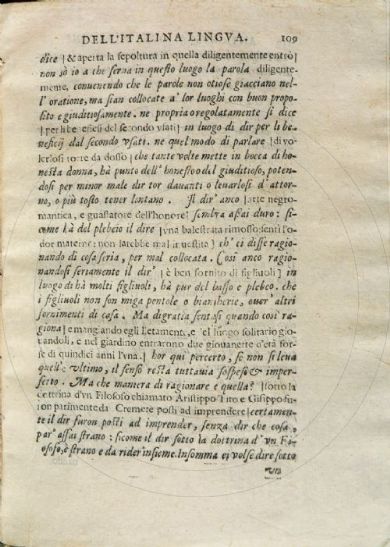 DELL'ITALINA LINGVA. 109
dice | & aperta la sepoltura in quella diligentemente entrò |
non sò io a che serua in questo luogo la parola diligente-
mente, conuenendo che le parole non otiose giacciano nel-
l'oratione, ma sian collocate a' lor luoghi con buon propo
sito e giuditiosamente. ne propria o regolatamente si dice
| per li beneficij del secondo vsati | in luogo di dir per li be-
neficij dal secondo vsati. ne quel modo di parlare | di vo-
lerlosi torre da dosso | che tante volte mette in bocca di ho-
nesta donna, hà punto dell'honesto o del giuditioso, poten-
dosi per minor male dir tor dauanti o leuarlosi d'attor-
no, o più tosto tener lontano. Il dir' anco | arte negro-
mantica, e guastatore dell'honore | sembra assai duro: si-
come hà del plebeio il dire | vna balestrata rimosso: sentì l'o-
dor materno: non sarebbe mal in questa | ch'ei disse ragio-
nando di cosa seria, per mal collocata. Così anco ragio-
nandosi seriamente il dir' | è ben fornito di figliuoli | in
luogo di hà molti figliuoli, hà pur del basso e plebeo. che
i figliuoli non son miga pentole o biancherie, ouer' altri
fornimenti di casa. Ma di gratia sentasi quando così ra-
giona | e mangiando egli lietamente, e 'el luogo solitario gio-
uandoli, e nel giardino entrarono due giouanette d'età for-
se di quindici anni l'vna. | hor qui per certo, se non si leua
quell'e vltimo, il senso resta tuttauia sospeso & imper-
fetto. Ma che maniera di ragionare e quella? | sotto la
dottrina d'vn Filosofo chiamato Aristippo Tito e Gisippo fu-
ron parimente da Cremete posti ad imprendere | certamente
il dir furon posti ad imprender, senza dir che cosa,
par' assai strano: sicome il dir sotto la dottrina d'vn Fi-
losofo, è strano e da rider' insieme. Insomma ei volse dire sotto